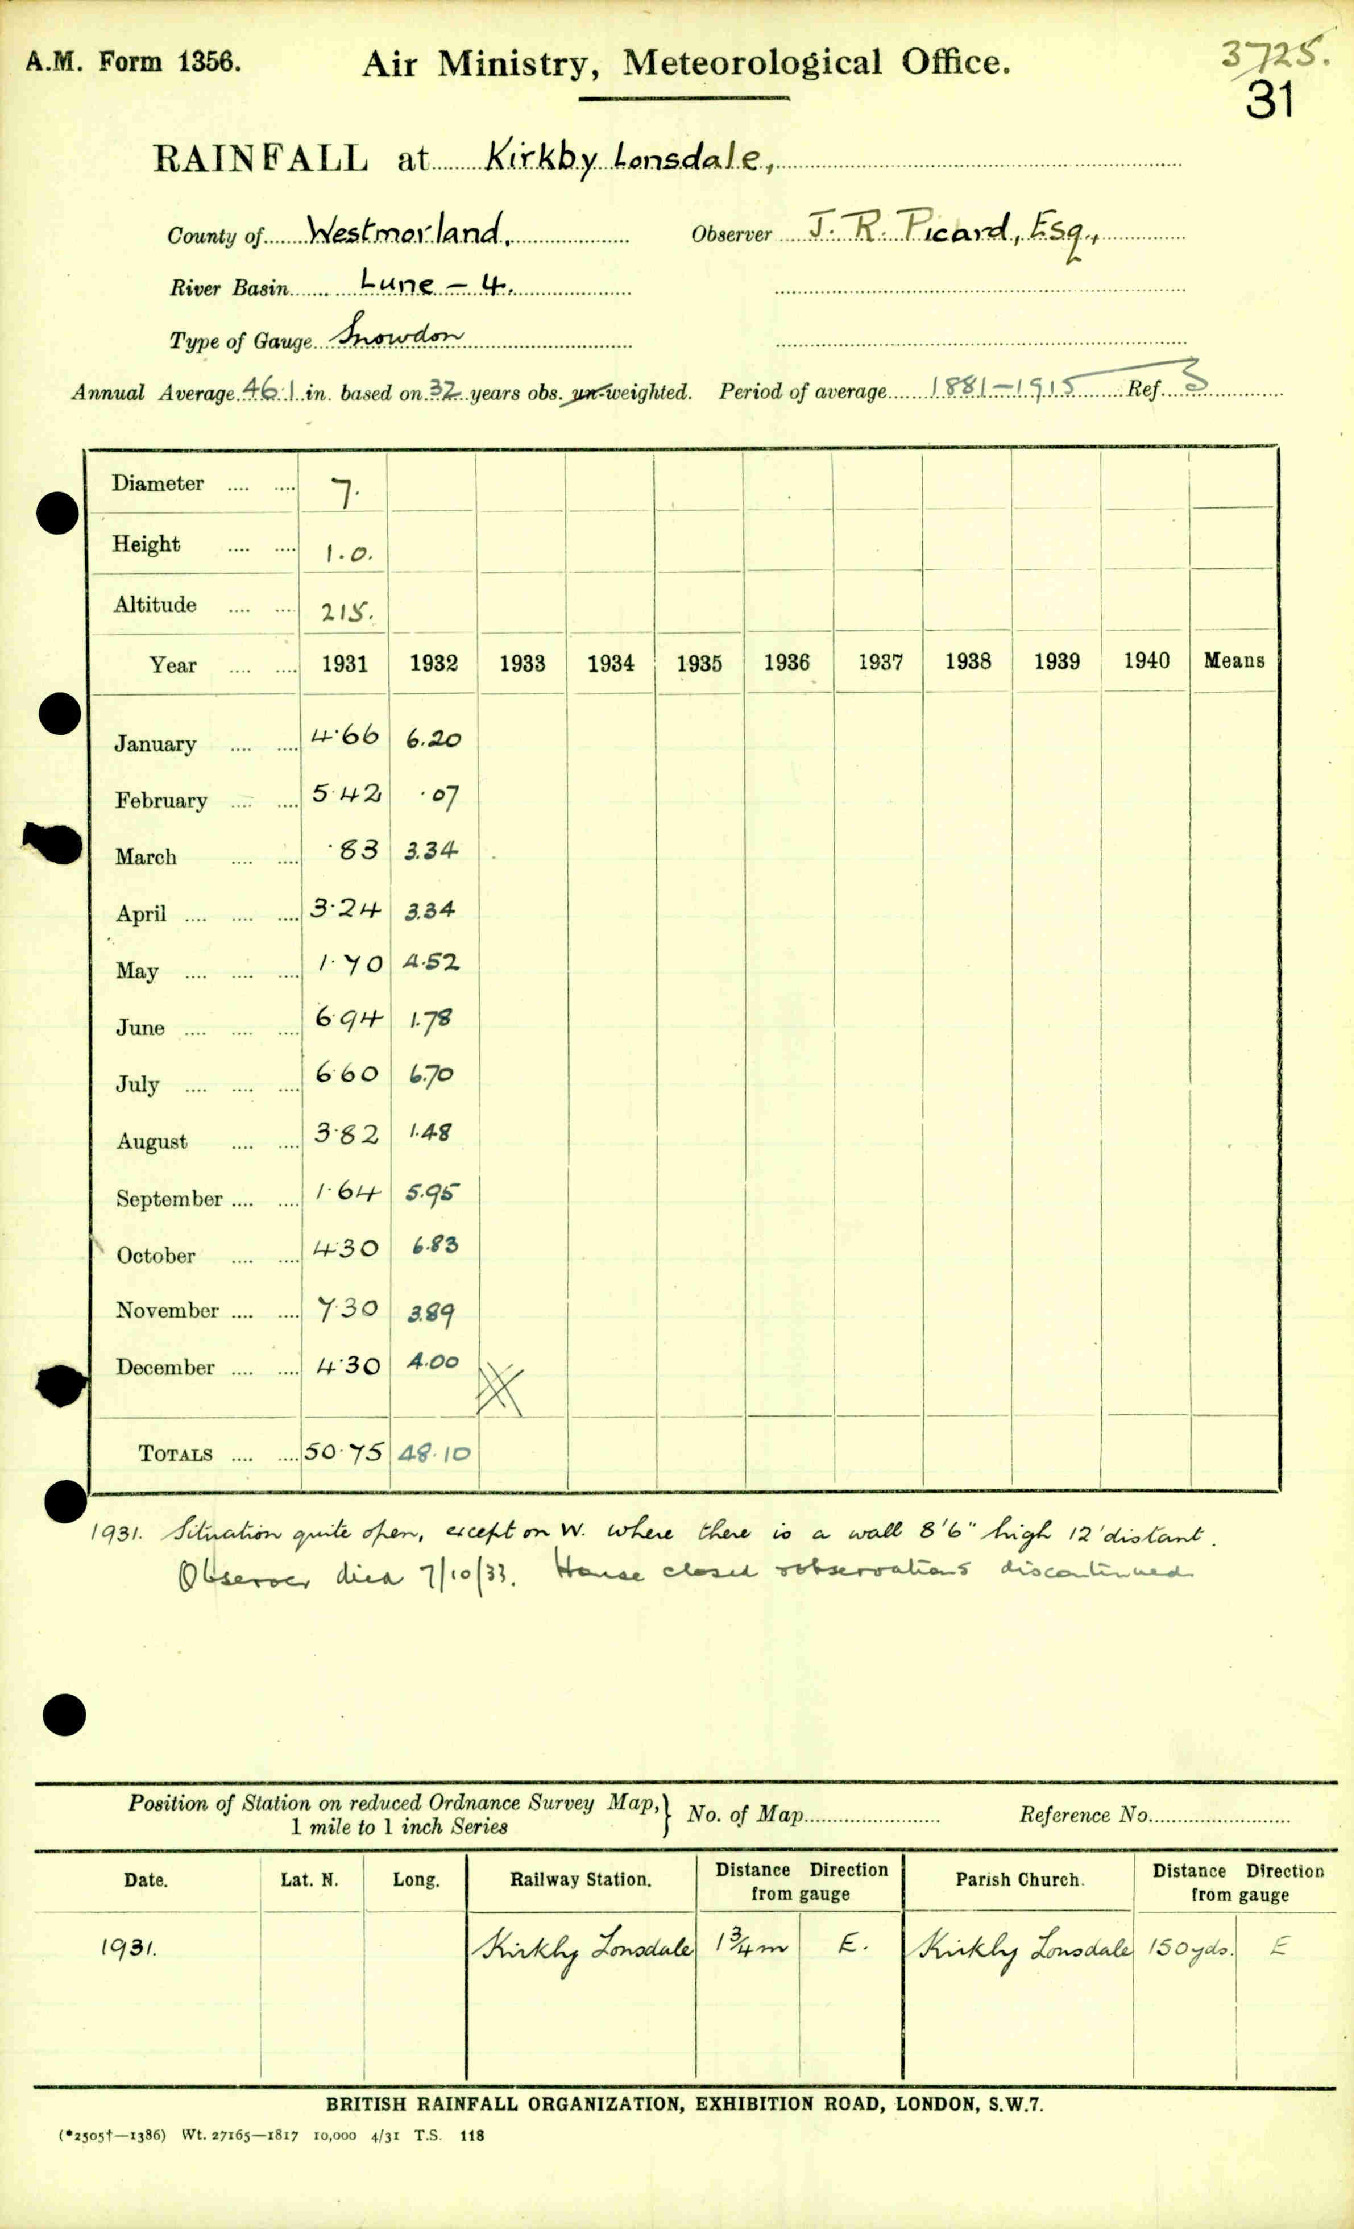 A.M. Form 1356.
Air Ministry, Meteorological Office.
3725.
31
RAINFALL at Kirkby Lonsdale,
County of Westmorland, Observer J. R. Picard, Esq.,
River Basin Lune - 4.
Type of Gauge Snowdon
Annual Average 46.1 in. based on 32 years obs. un-weighted. Period of average 1881-1915 Ref. 3
Diameter .... .... 7.
Height .... .... 1.0.
Altitude .... .... 215.
Year .... .... 1931 1932 1933 1934 1935 1936 1937 1938 1939 1940 Means
January .... .... 4.66 6.20
February .... .... 5.42 .07
March .... .... .83 3.34
April .... .... .... 3.24 3.34
May .... .... .... 1.70 4.52
June .... .... .... 6.94 1.78
July .... .... .... 6.60 6.70
August .... .... 3.82 1.48
September .... .... 1.64 5.95
October .... .... 4.30 6.83
November .... .... 7.30 3.89
December .... .... 4.30 4.00
TOTALS .... .... 50.75 48.10
1931. Situation quite open, except on W. where there is a wall 8'6" high 12' distant.
Observer died 7/10/33. House closed & observations discontinued
Position of Station on reduced Ordnance Survey Map,} No. of Map Reference No.
1 mile to 1 inch Series
Date. Lat. N. Long. Railway Station. Distance Direction from gauge Parish Church. Distance Direction from gauge
1931. Kirkby Lonsdale 1 3/4 m E. Kirkby Lonsdale 150 yds. E
BRITISH RAINFALL ORGANIZATION, EXHIBITION ROAD, LONDON, S.W.7.
(*2505†—1386) Wt. 27165—1817 10,000 4/31 T.S. 118